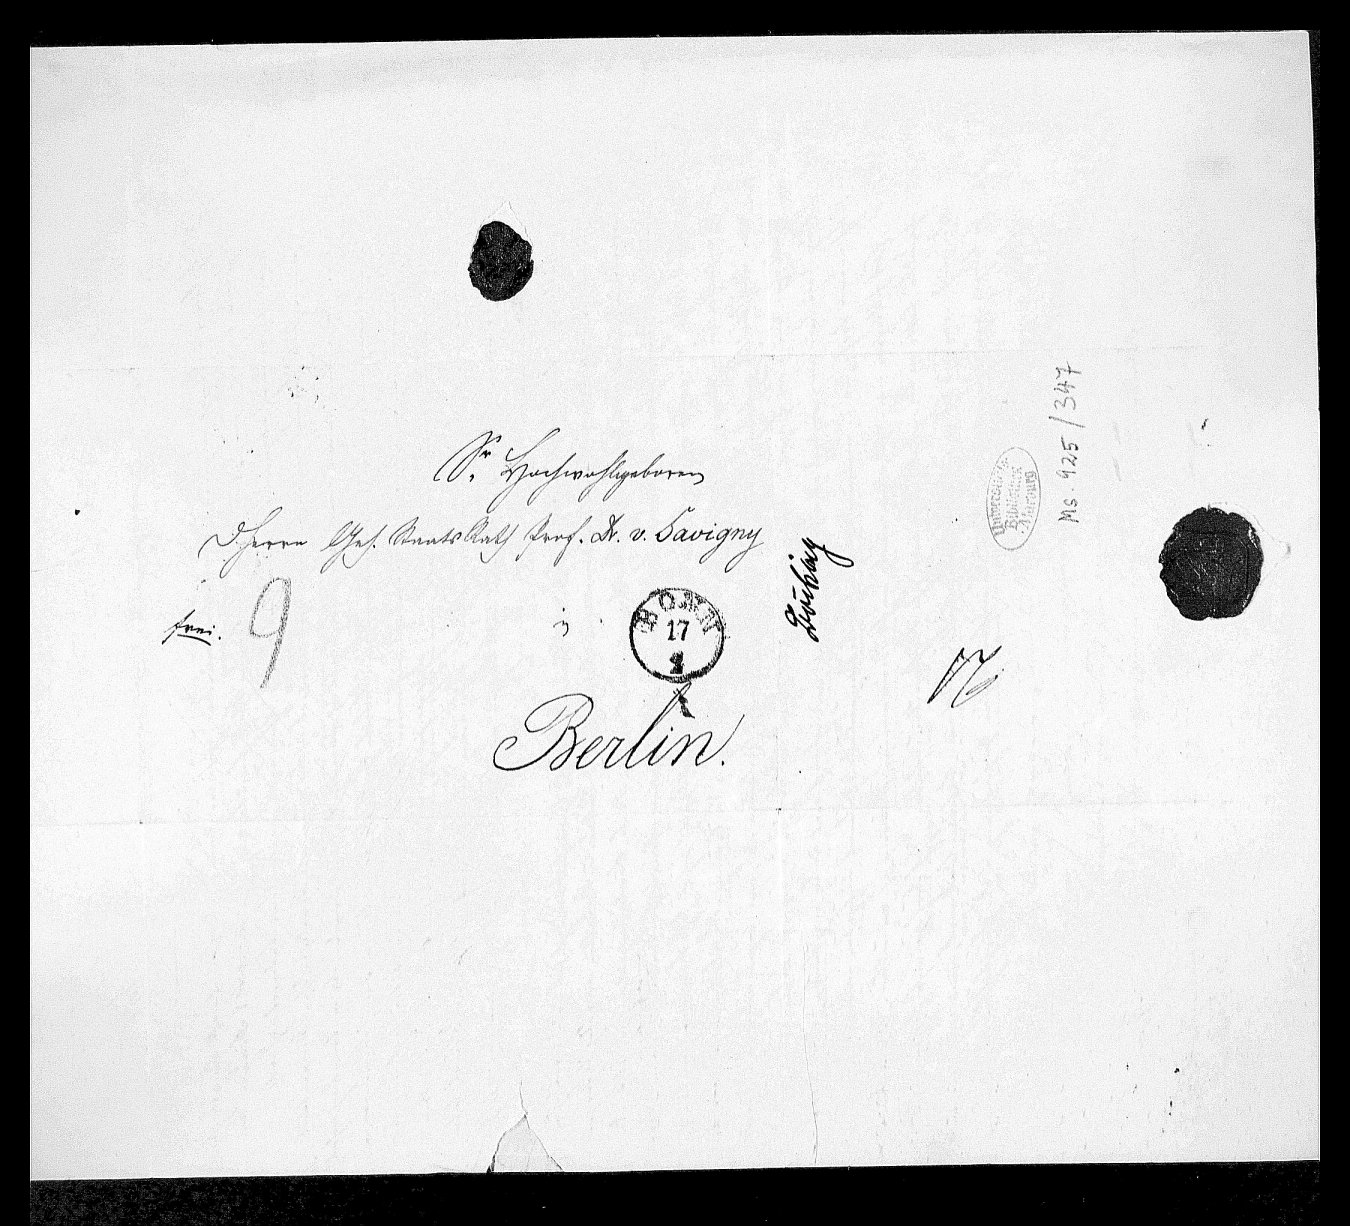 Sr. Hochwohlgeboren
Herrn Geh. StaatsRath Prof. Dr. v. Savigny
frei.
9
in
BONN
17
Berlin.
Böcking
Universitäts-
Bibliothek
Marburg
Ms. 925/347